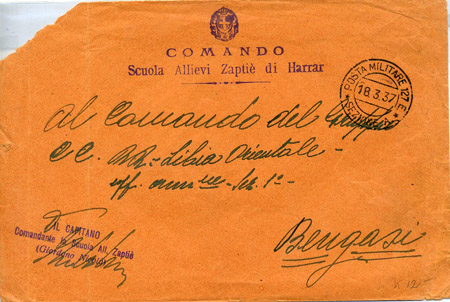 COMANDO
Scuola Allievi Zaptiè di Harrar
POSTA MILITARE 127 E
18.3.37
Al Comando del Gruppo
CC. RR. Libia Orientale -
uff. amm - Sez. 1ª -
Bengasi
IL CAPITANO
Comandante la Scuola All. Zaptiè